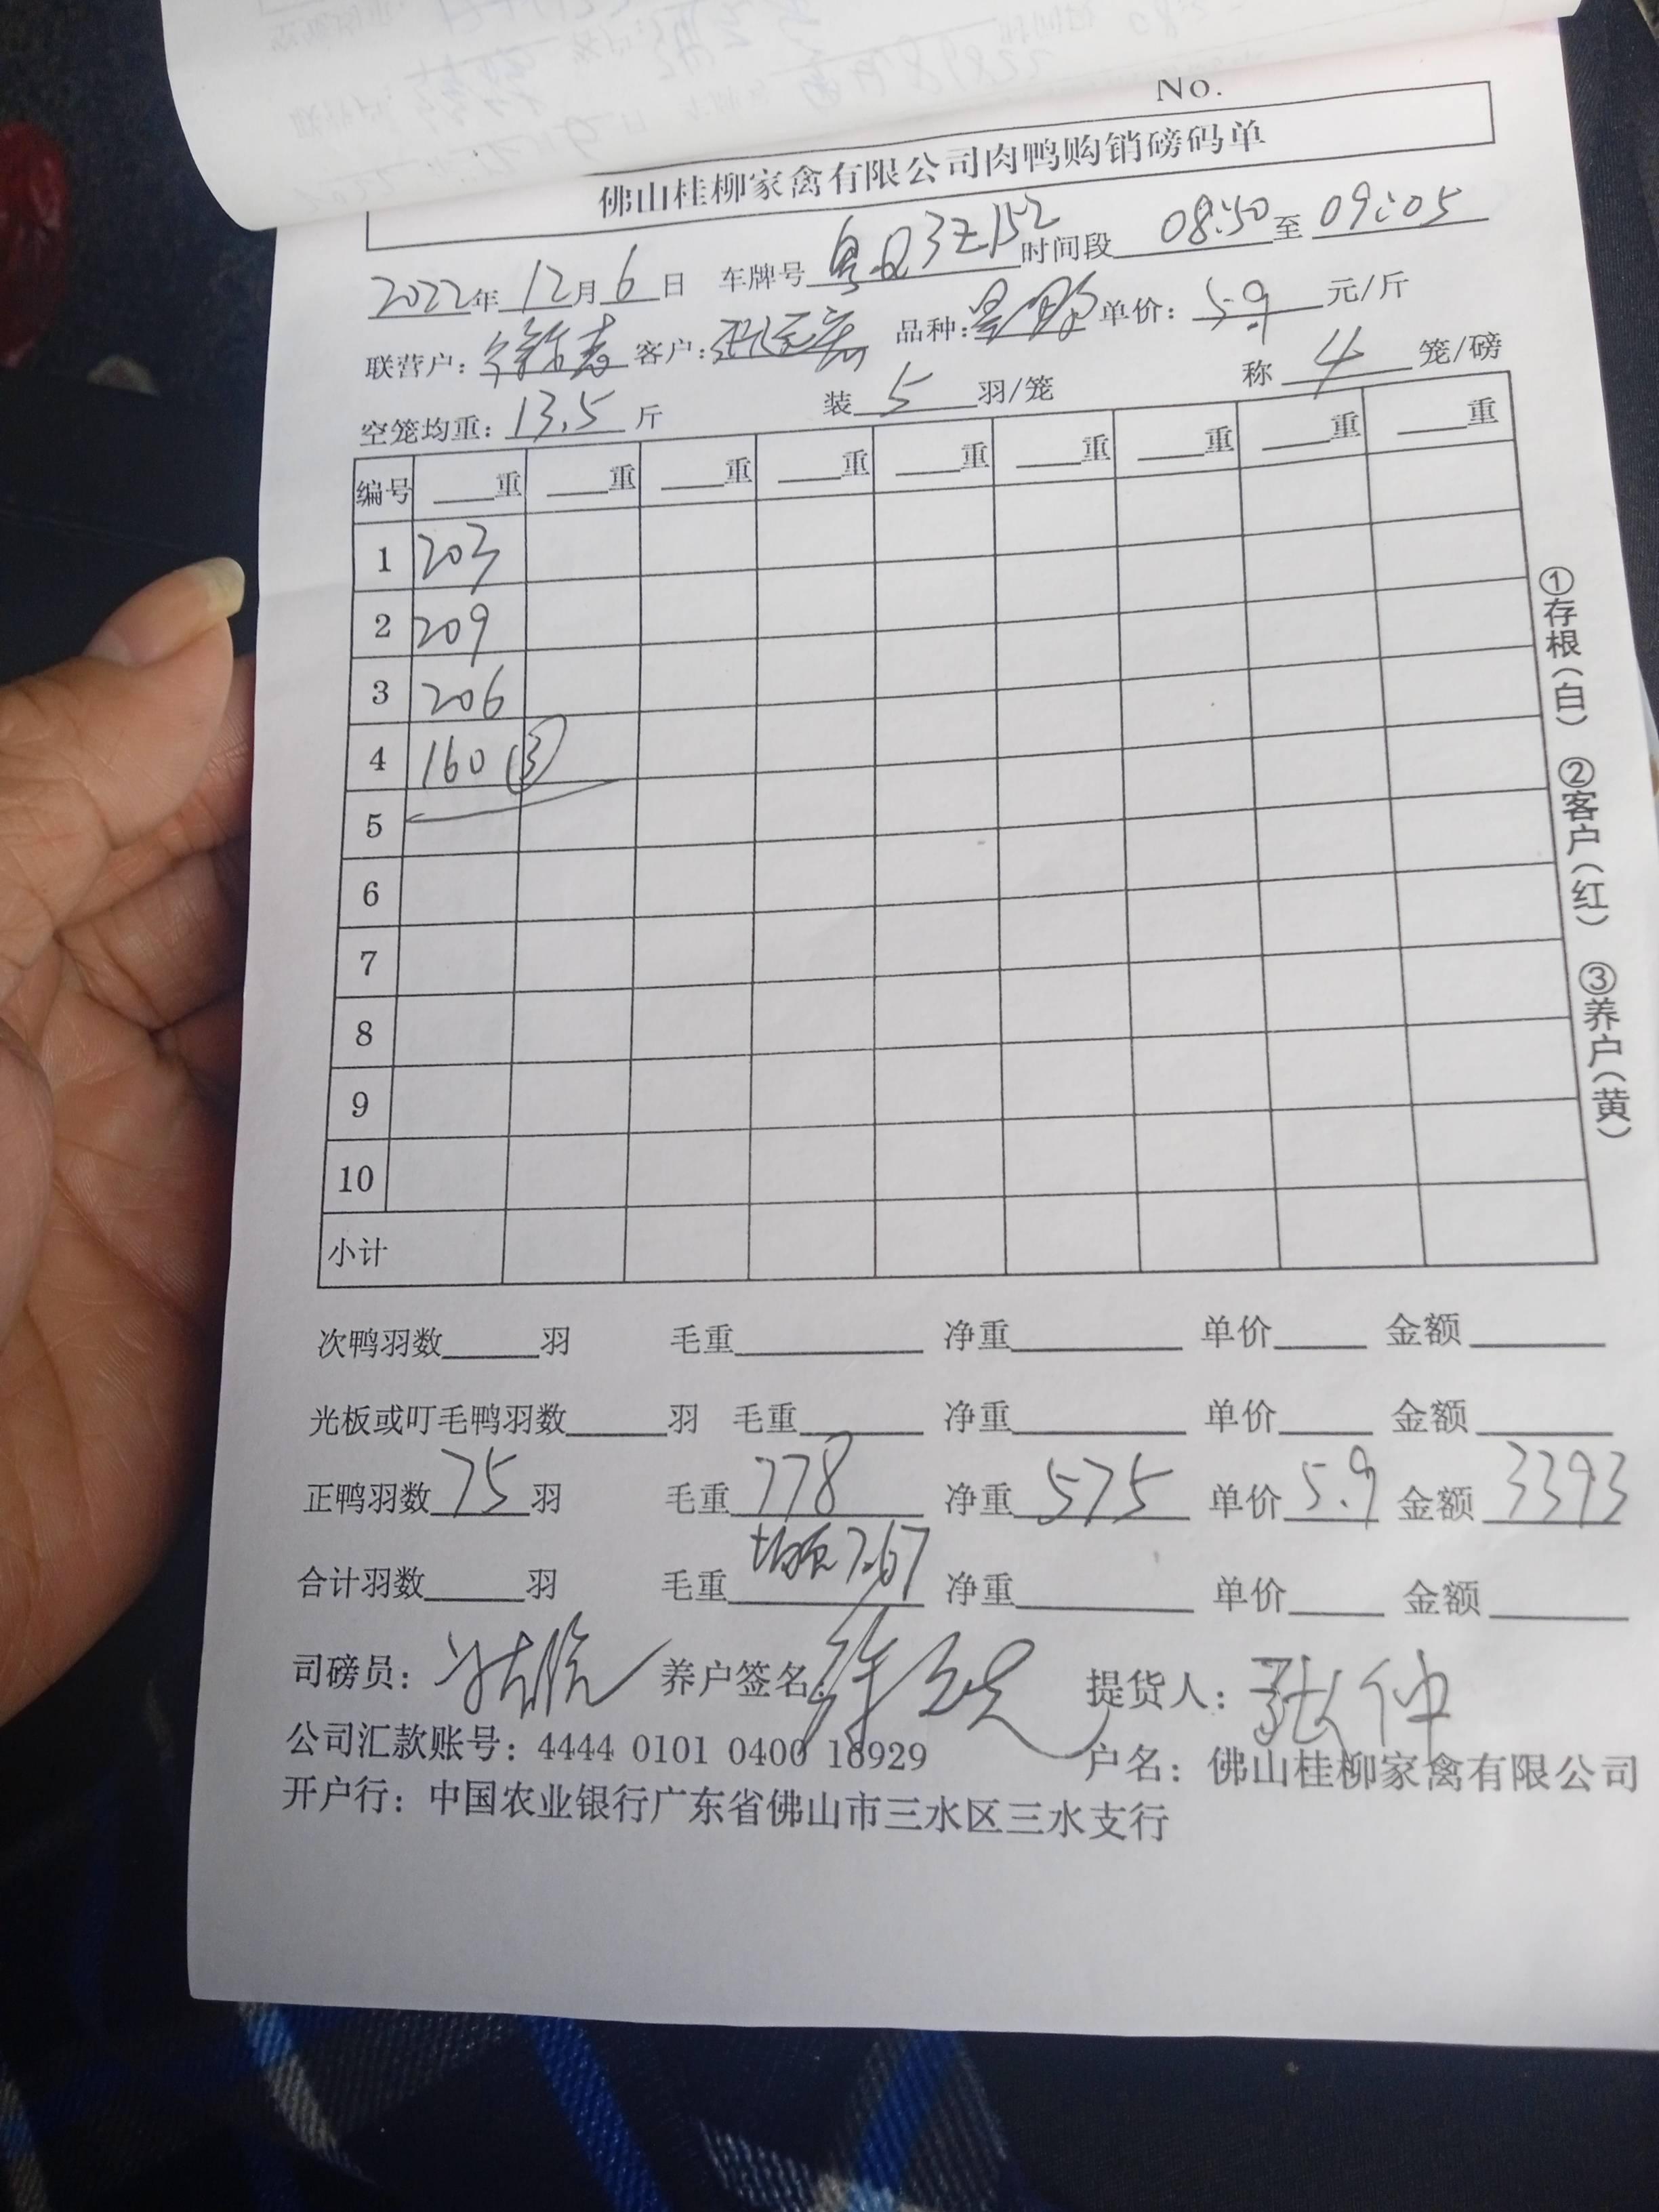 No.
佛山桂柳家禽有限公司肉鸭购销磅码单
2022年12月6日 车牌号粤Q3Z152时间段08:50至09:05
联营户: 客户: 品种: 单价: 5.9元/斤
空笼均重: 13.5斤 装5羽/笼 称4笼/磅
编号 重 重 重 重 重 重 重 重 重
1 203
2 209
3 206
4 160 (3)
5
6
7
8
9
10
小计
①存根(白) ②客户(红) ③养户(黄)
次鸭羽数 羽 毛重 净重 单价 金额
光板或叮毛鸭羽数 羽 毛重 净重 单价 金额
正鸭羽数75羽 毛重778 净重575 单价5.9 金额3393
均重7.67
合计羽数 羽 毛重 净重 单价 金额
司磅员: 养户签名: 提货人: 张仲
公司汇款账号: 4444 0101 0400 16929 户名: 佛山桂柳家禽有限公司
开户行: 中国农业银行广东省佛山市三水区三水支行